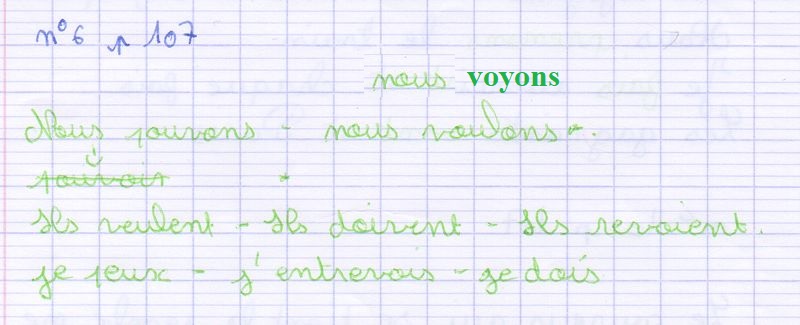 n°6 p 107
nous voyons
Nous pouvons - nous voulons -.
pouvoir
Ils veulent - Ils doivent - Ils revoient.
je peux - j'entrevois - je dois